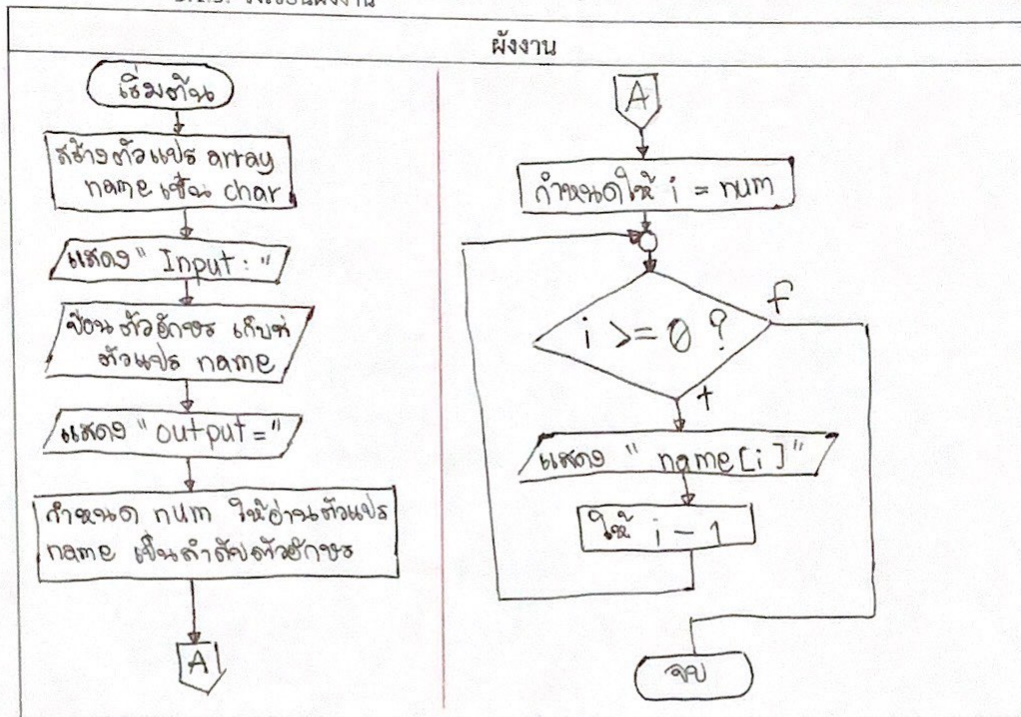 ผังงาน
เริ่มต้น
สร้างตัวแปร array
name เป็น char
แสดง " Input : "
ป้อนตัวอักษร เก็บที่
ตัวแปร name
แสดง " output = "
กำหนด num ให้อ่านตัวแปร
name เป็นลำดับตัวอักษร
A
A
กำหนดให้ i = num
i >= 0 ?
f
t
แสดง " name [ i ] "
ให้ i - 1
จบ